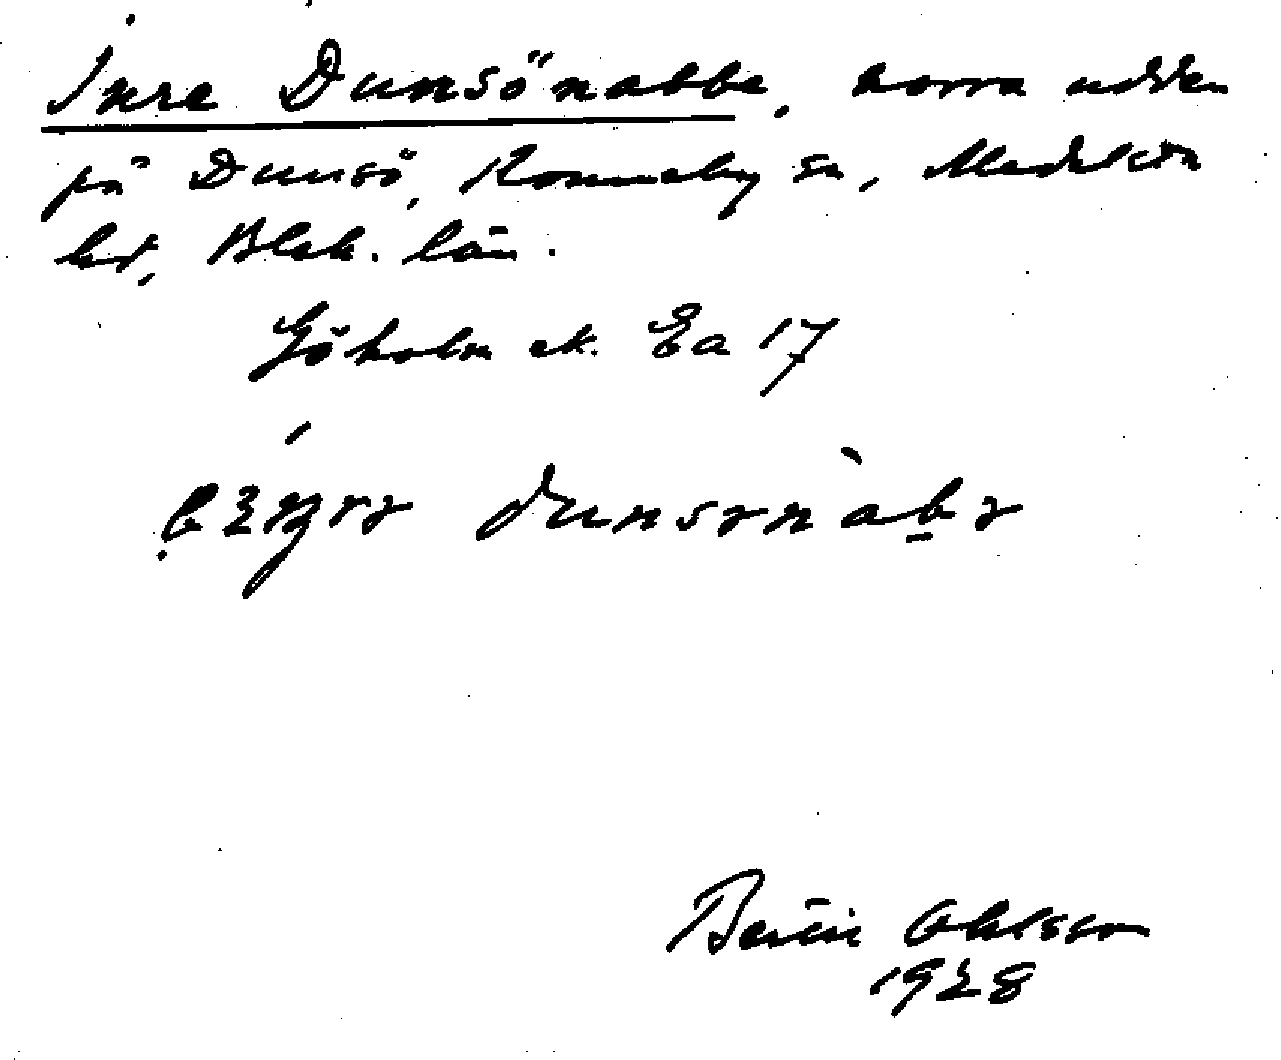 Inre Dunsönabbe, norra udden
på Dunsö, Ronneby sn, Medelsta
hd, Blek. län.
Göholm ek. Ea 17
dunsɤnàbɤ
Bertil Ohlsson
1928